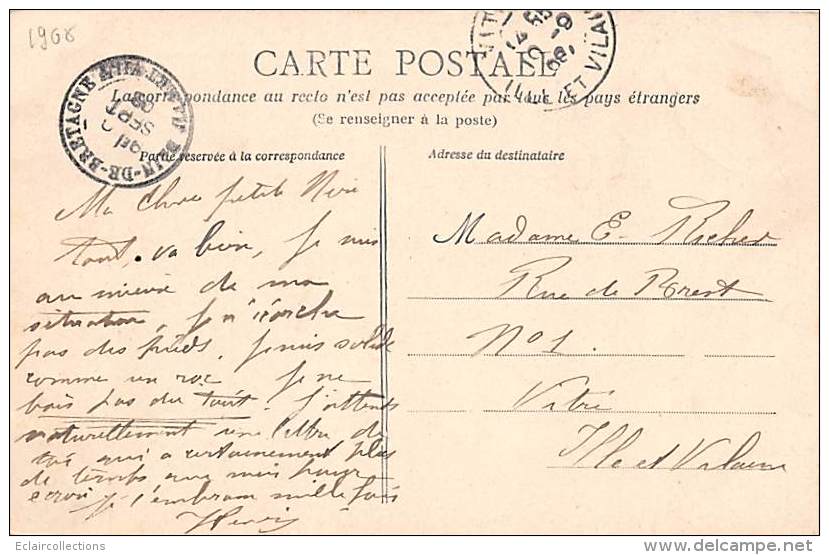 1908
CARTE POSTALE
La correspondance au recto n'est pas acceptée par tous les pays étrangers
(Se renseigner à la poste)
BAIN-DE-BRETAGNE ILLE-ET-VILAINE
SEPT
08
ILLE ET VILAINE
Partie réservée à la correspondance
Adresse du destinataire
Ma Chère petite
Tout va bien, Je suis
au mieux de ma
situation, Je n'écorche
pas des pieds. Je suis solide
comme un roc Je ne
bois pas du tout. J'attends
naturellement une lettre de
toi qui a certainement plus
de temps que moi pour
écrire Je t'embrasse mille fois
Henri
Madame E. Richer
Rue de Brest
No 1.
Vitré
Ille et Vilaine
Eclaircollections
delcampe.net